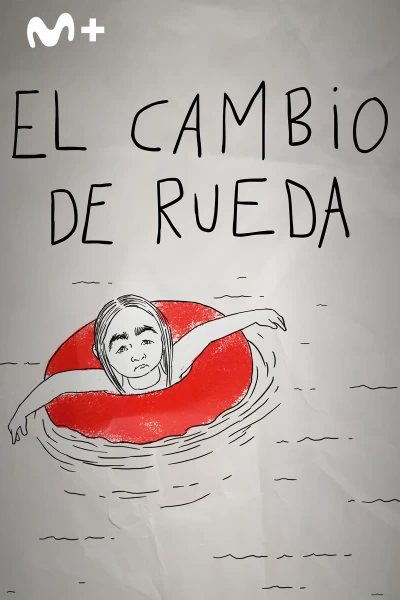 M+
EL CAMBiO
DE RUEDA